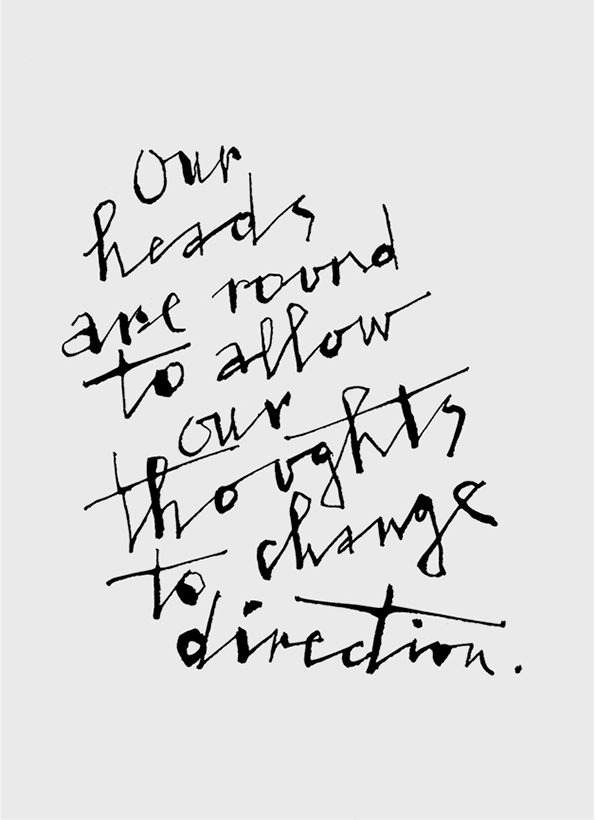 Our
heads
are round
to allow
our
thoughts
to change
direction.